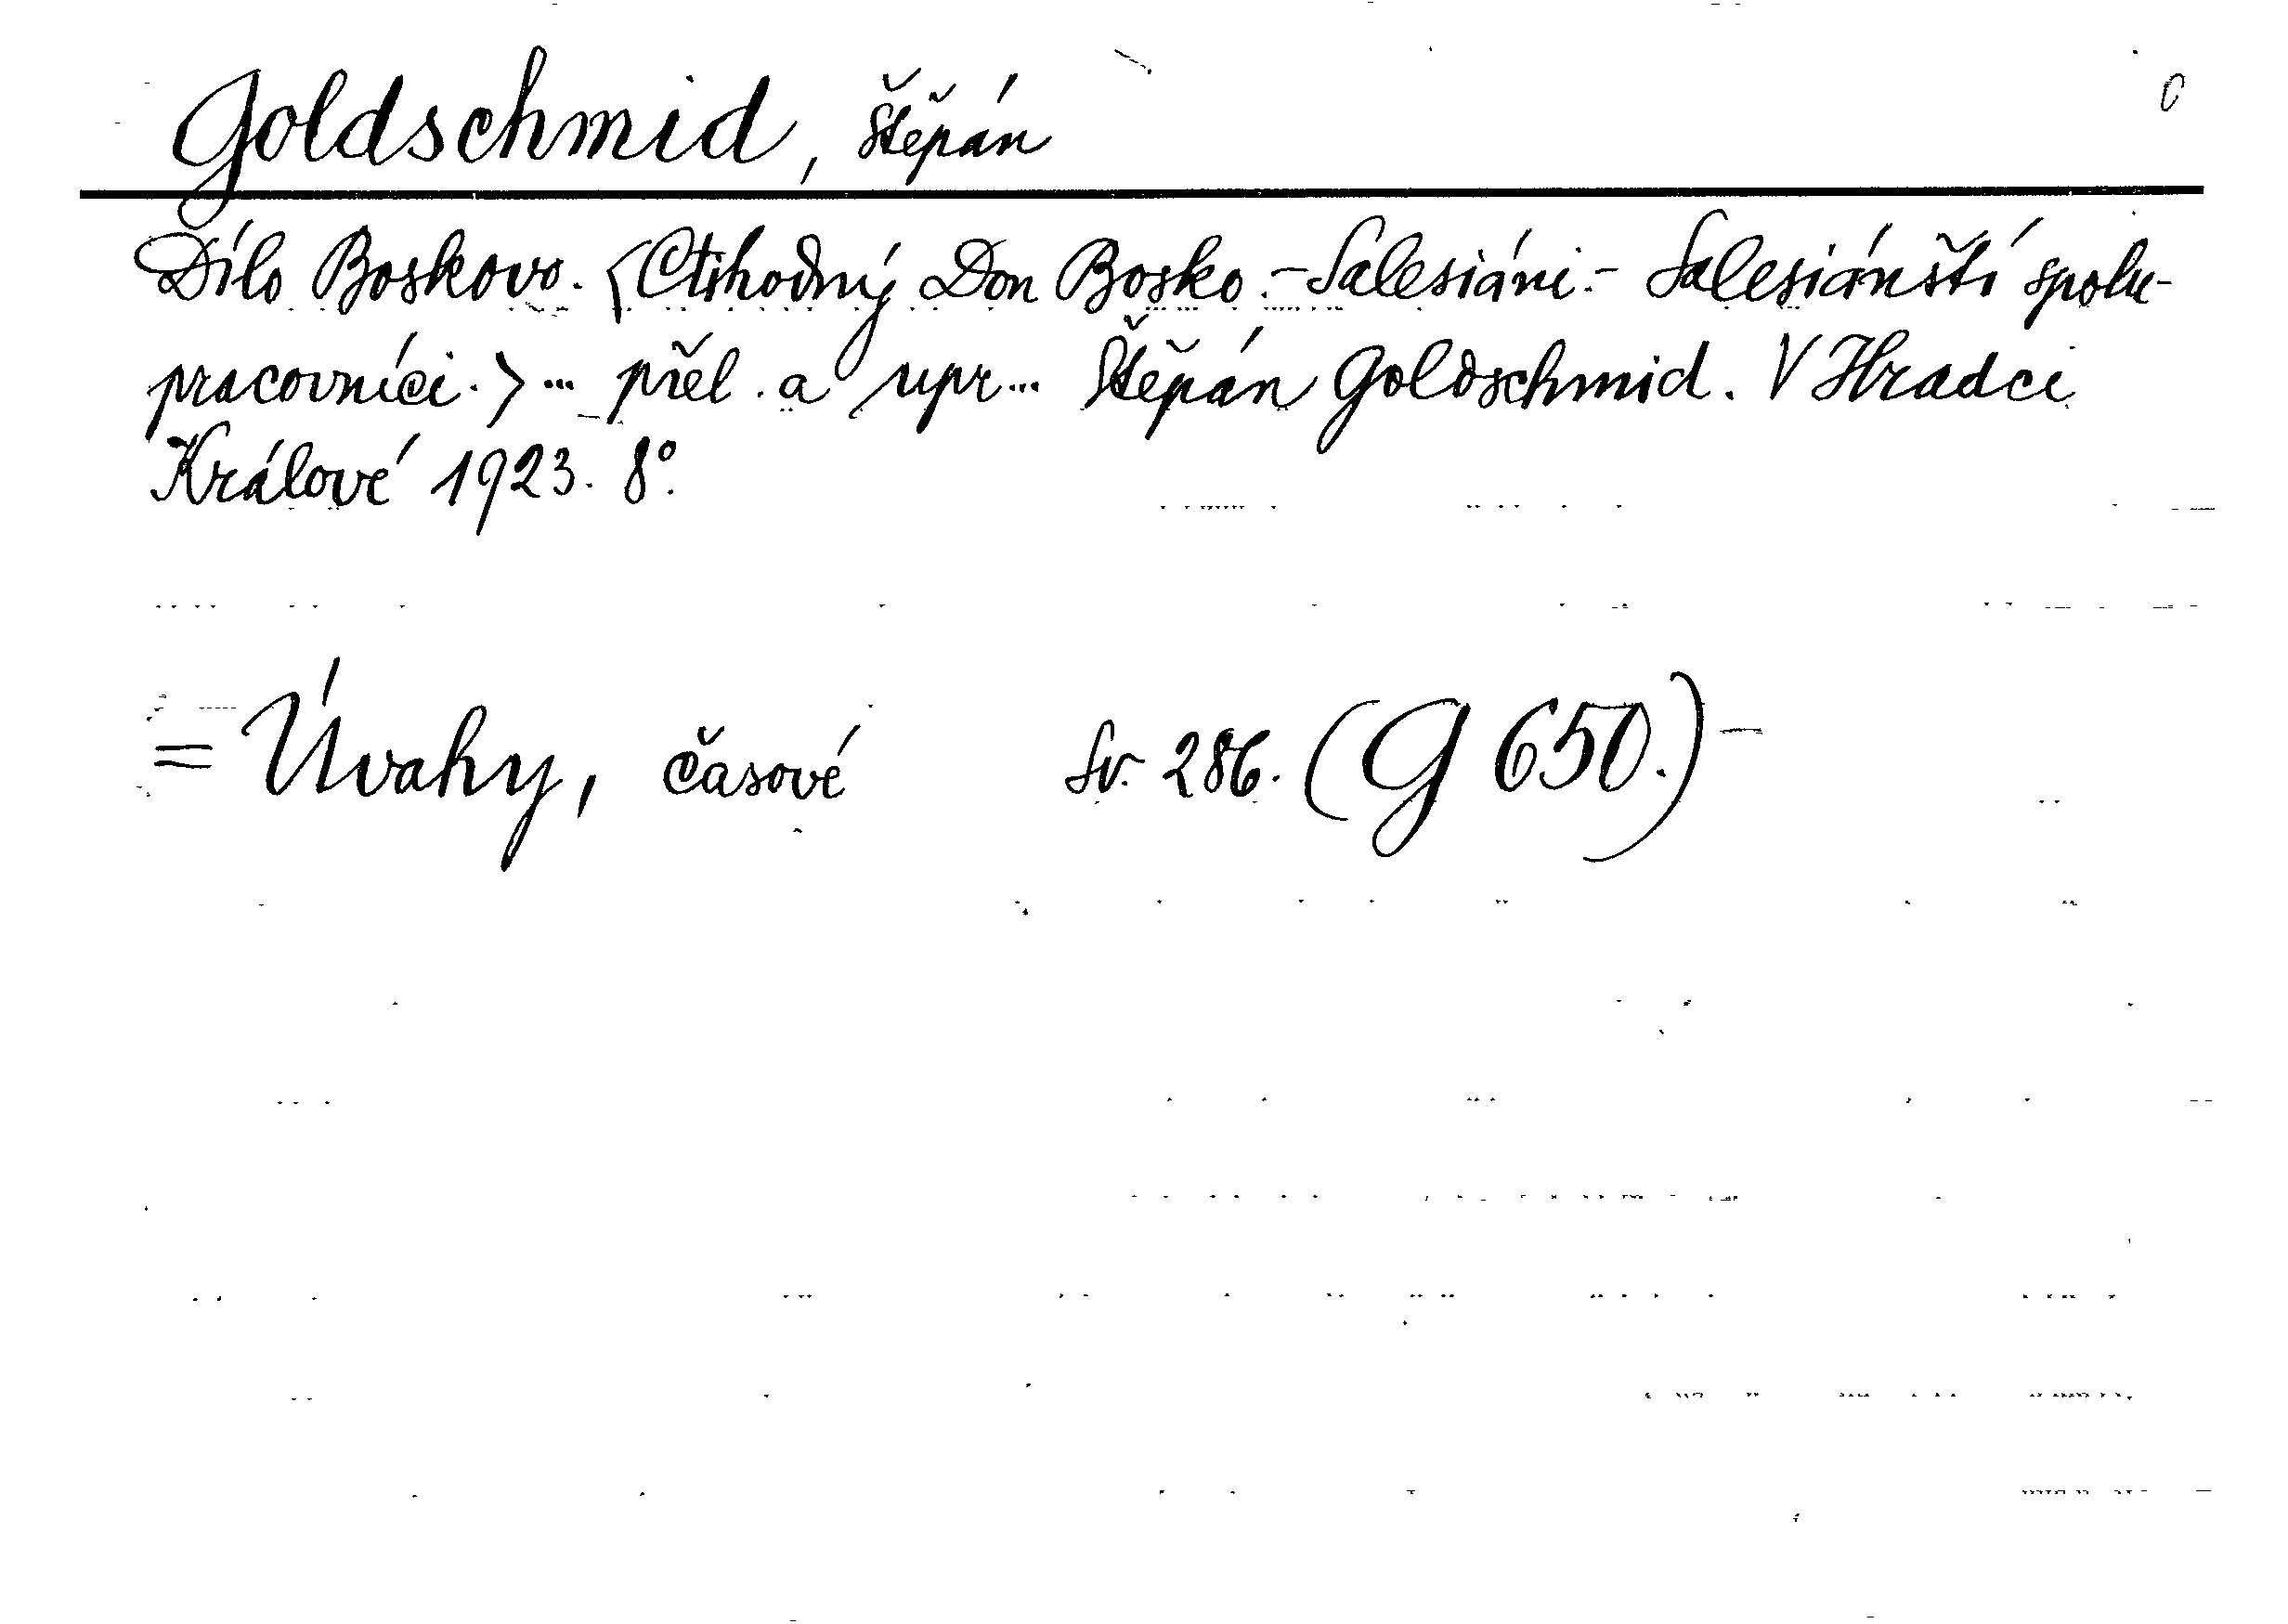 Goldschmid, Štěpán
Dílo Boskovo. <Ctihodný Don Bosko.-Salesiáni.- Salesiánští spolu-
pracovníci.> ... přel. a upr... Štěpán Goldschmid. V Hradci
Králové 1923. 8°.
= Úvahy, časové Sv. 286. (G 650.)-